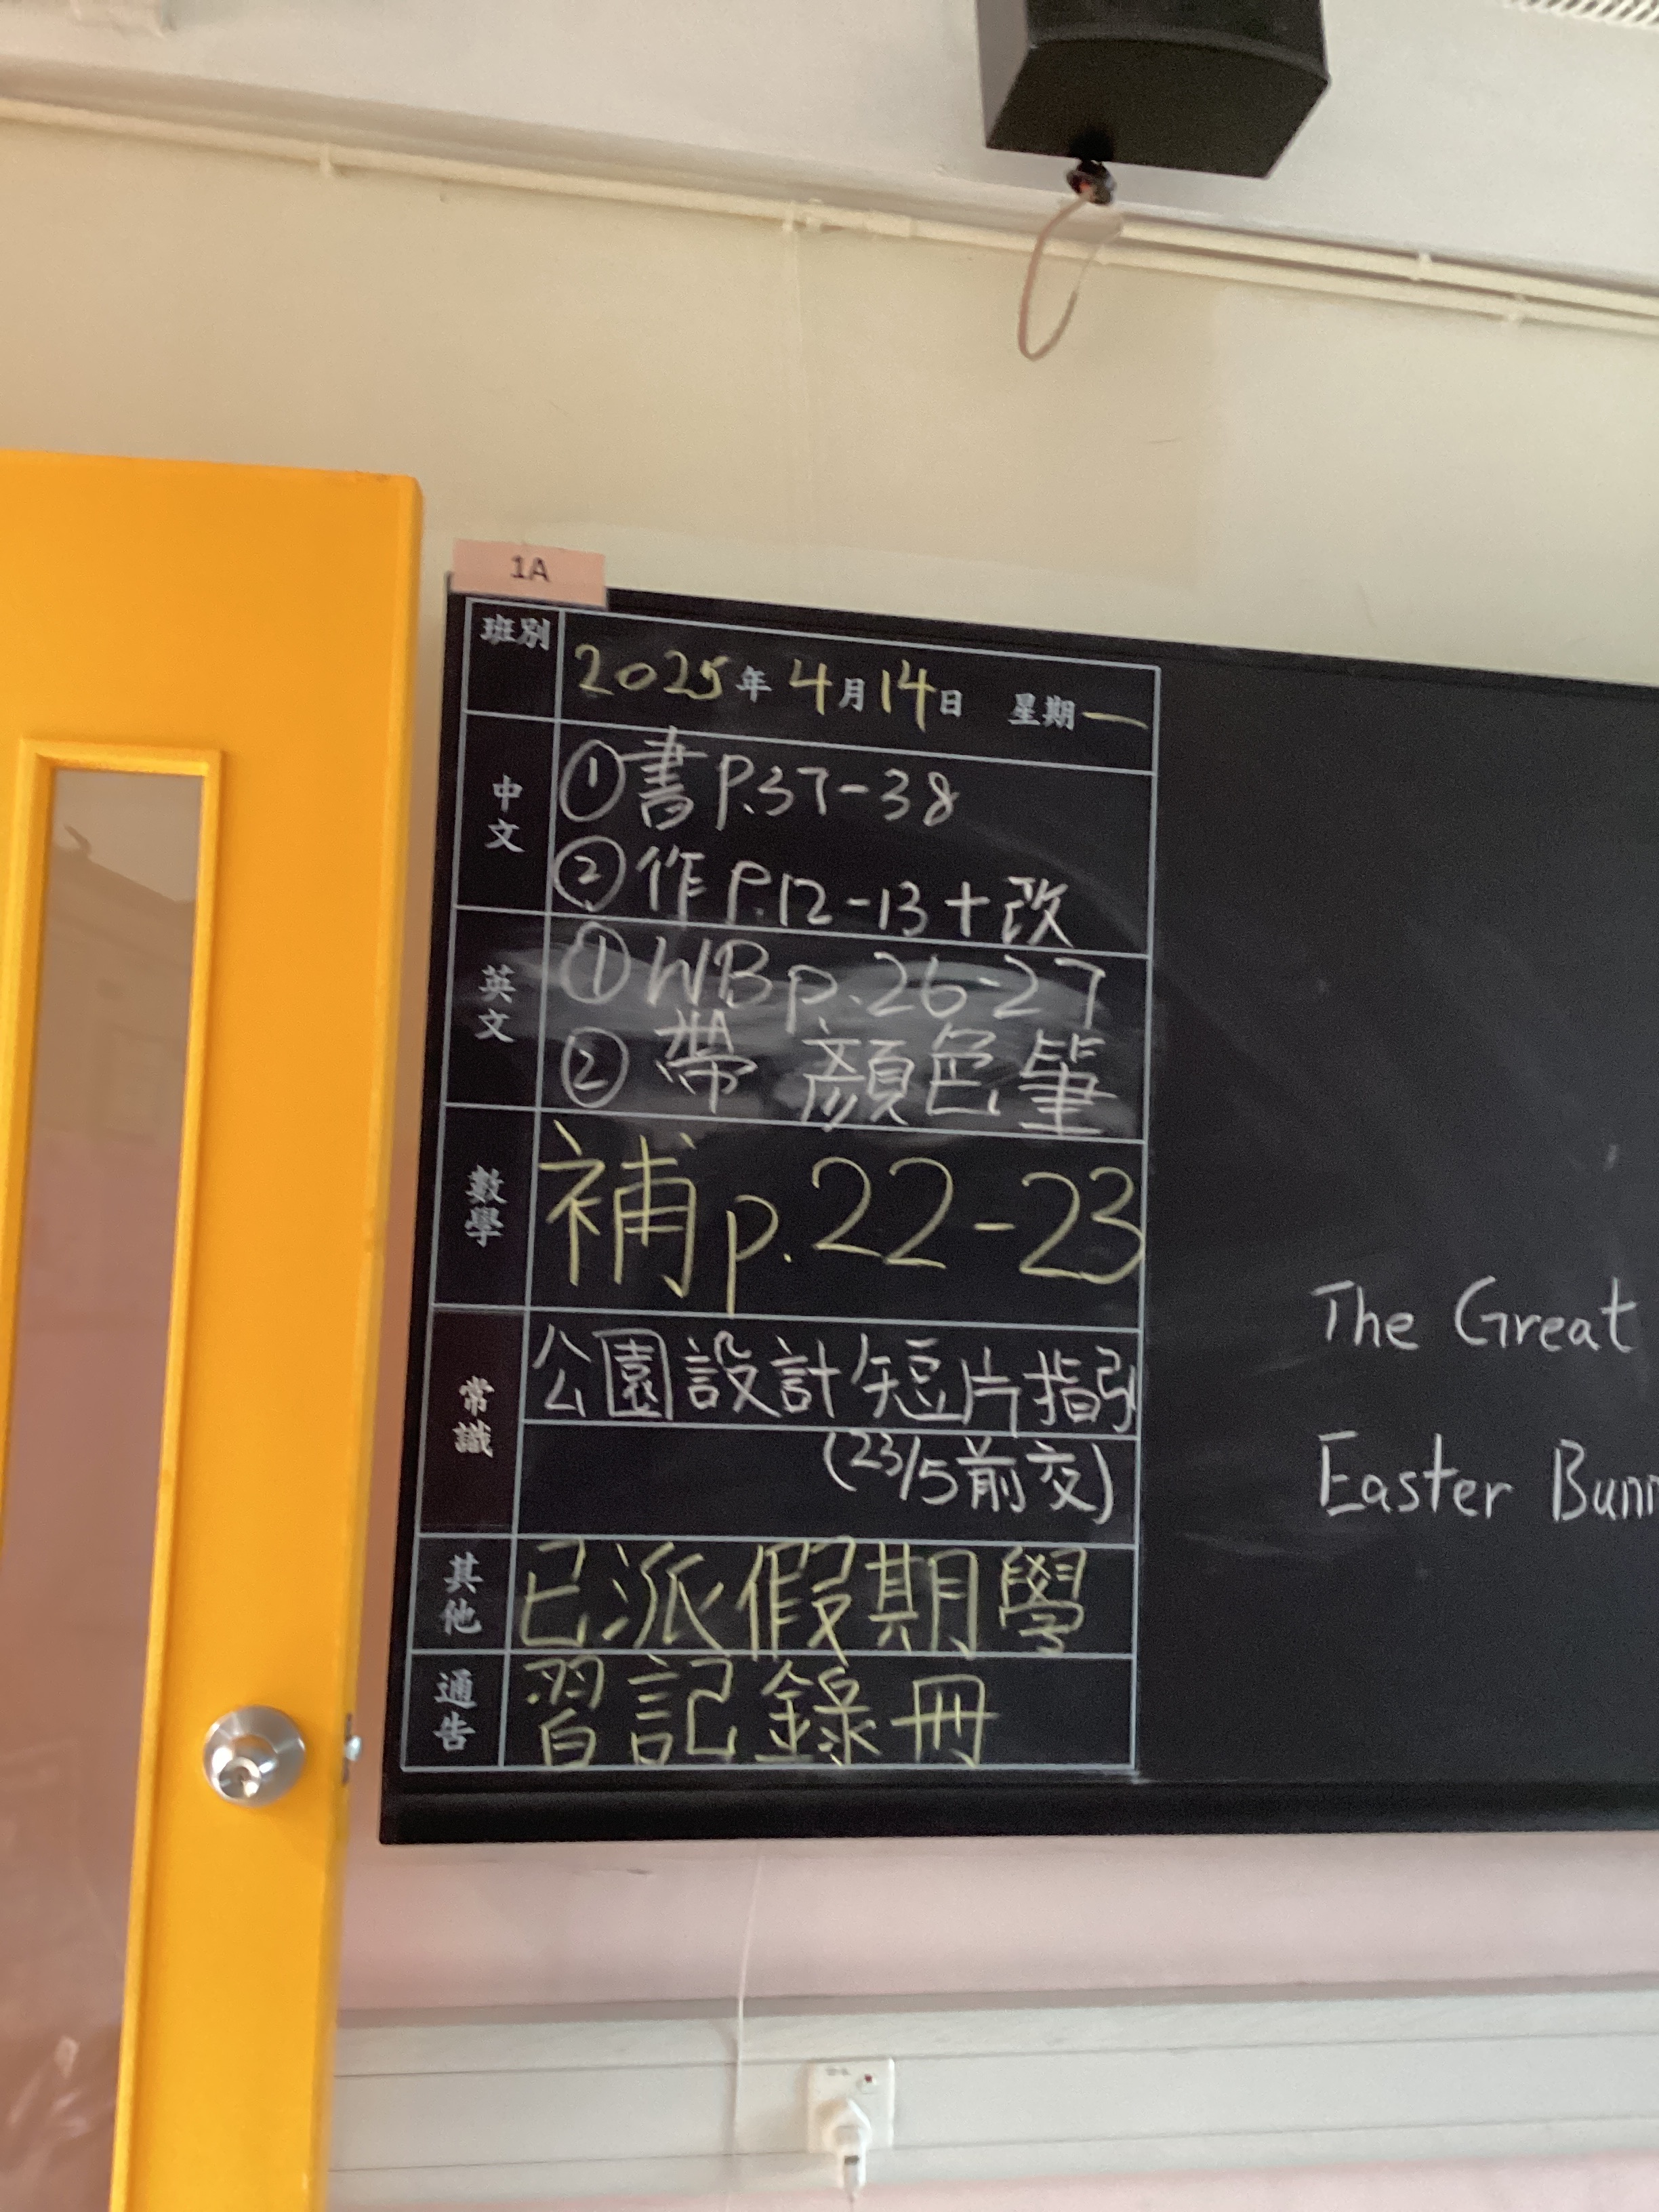 1A
班別 2025年4月14日 星期一
中文
①書P.37-38
②作P.12-13+改
英文
①WB p.26-27
②帶顏色筆
數學
補p.22-23
常識
公園設計短片指引
(23/5前交)
其他
已派假期學
通告
習記錄冊
The Great
Easter Bunn